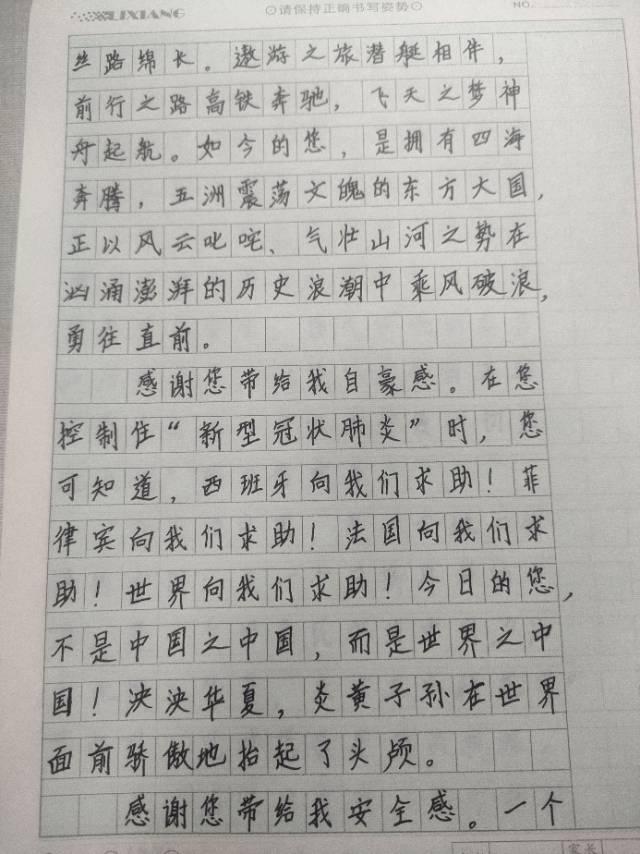 LIXIANG ⊙请保持正确书写姿势⊙ NO.
丝路绵长。遨游之旅潜艇相伴，
前行之路高铁奔驰，飞天之梦神
舟起航。如今的您，是拥有四海
奔腾，五洲震荡文魄的东方大国，
正以风云叱咤、气壮山河之势在
汹涌澎湃的历史浪潮中乘风破浪，
勇往直前。
感谢您带给我自豪感。在您
控制住“新型冠状肺炎”时，您
可知道，西班牙向我们求助！菲
律宾向我们求助！法国向我们求
助！世界向我们求助！今日的您，
不是中国之中国，而是世界之中
国！泱泱华夏，炎黄子孙在世界
面前骄傲地抬起了头颅。
感谢您带给我安全感。一个
家长